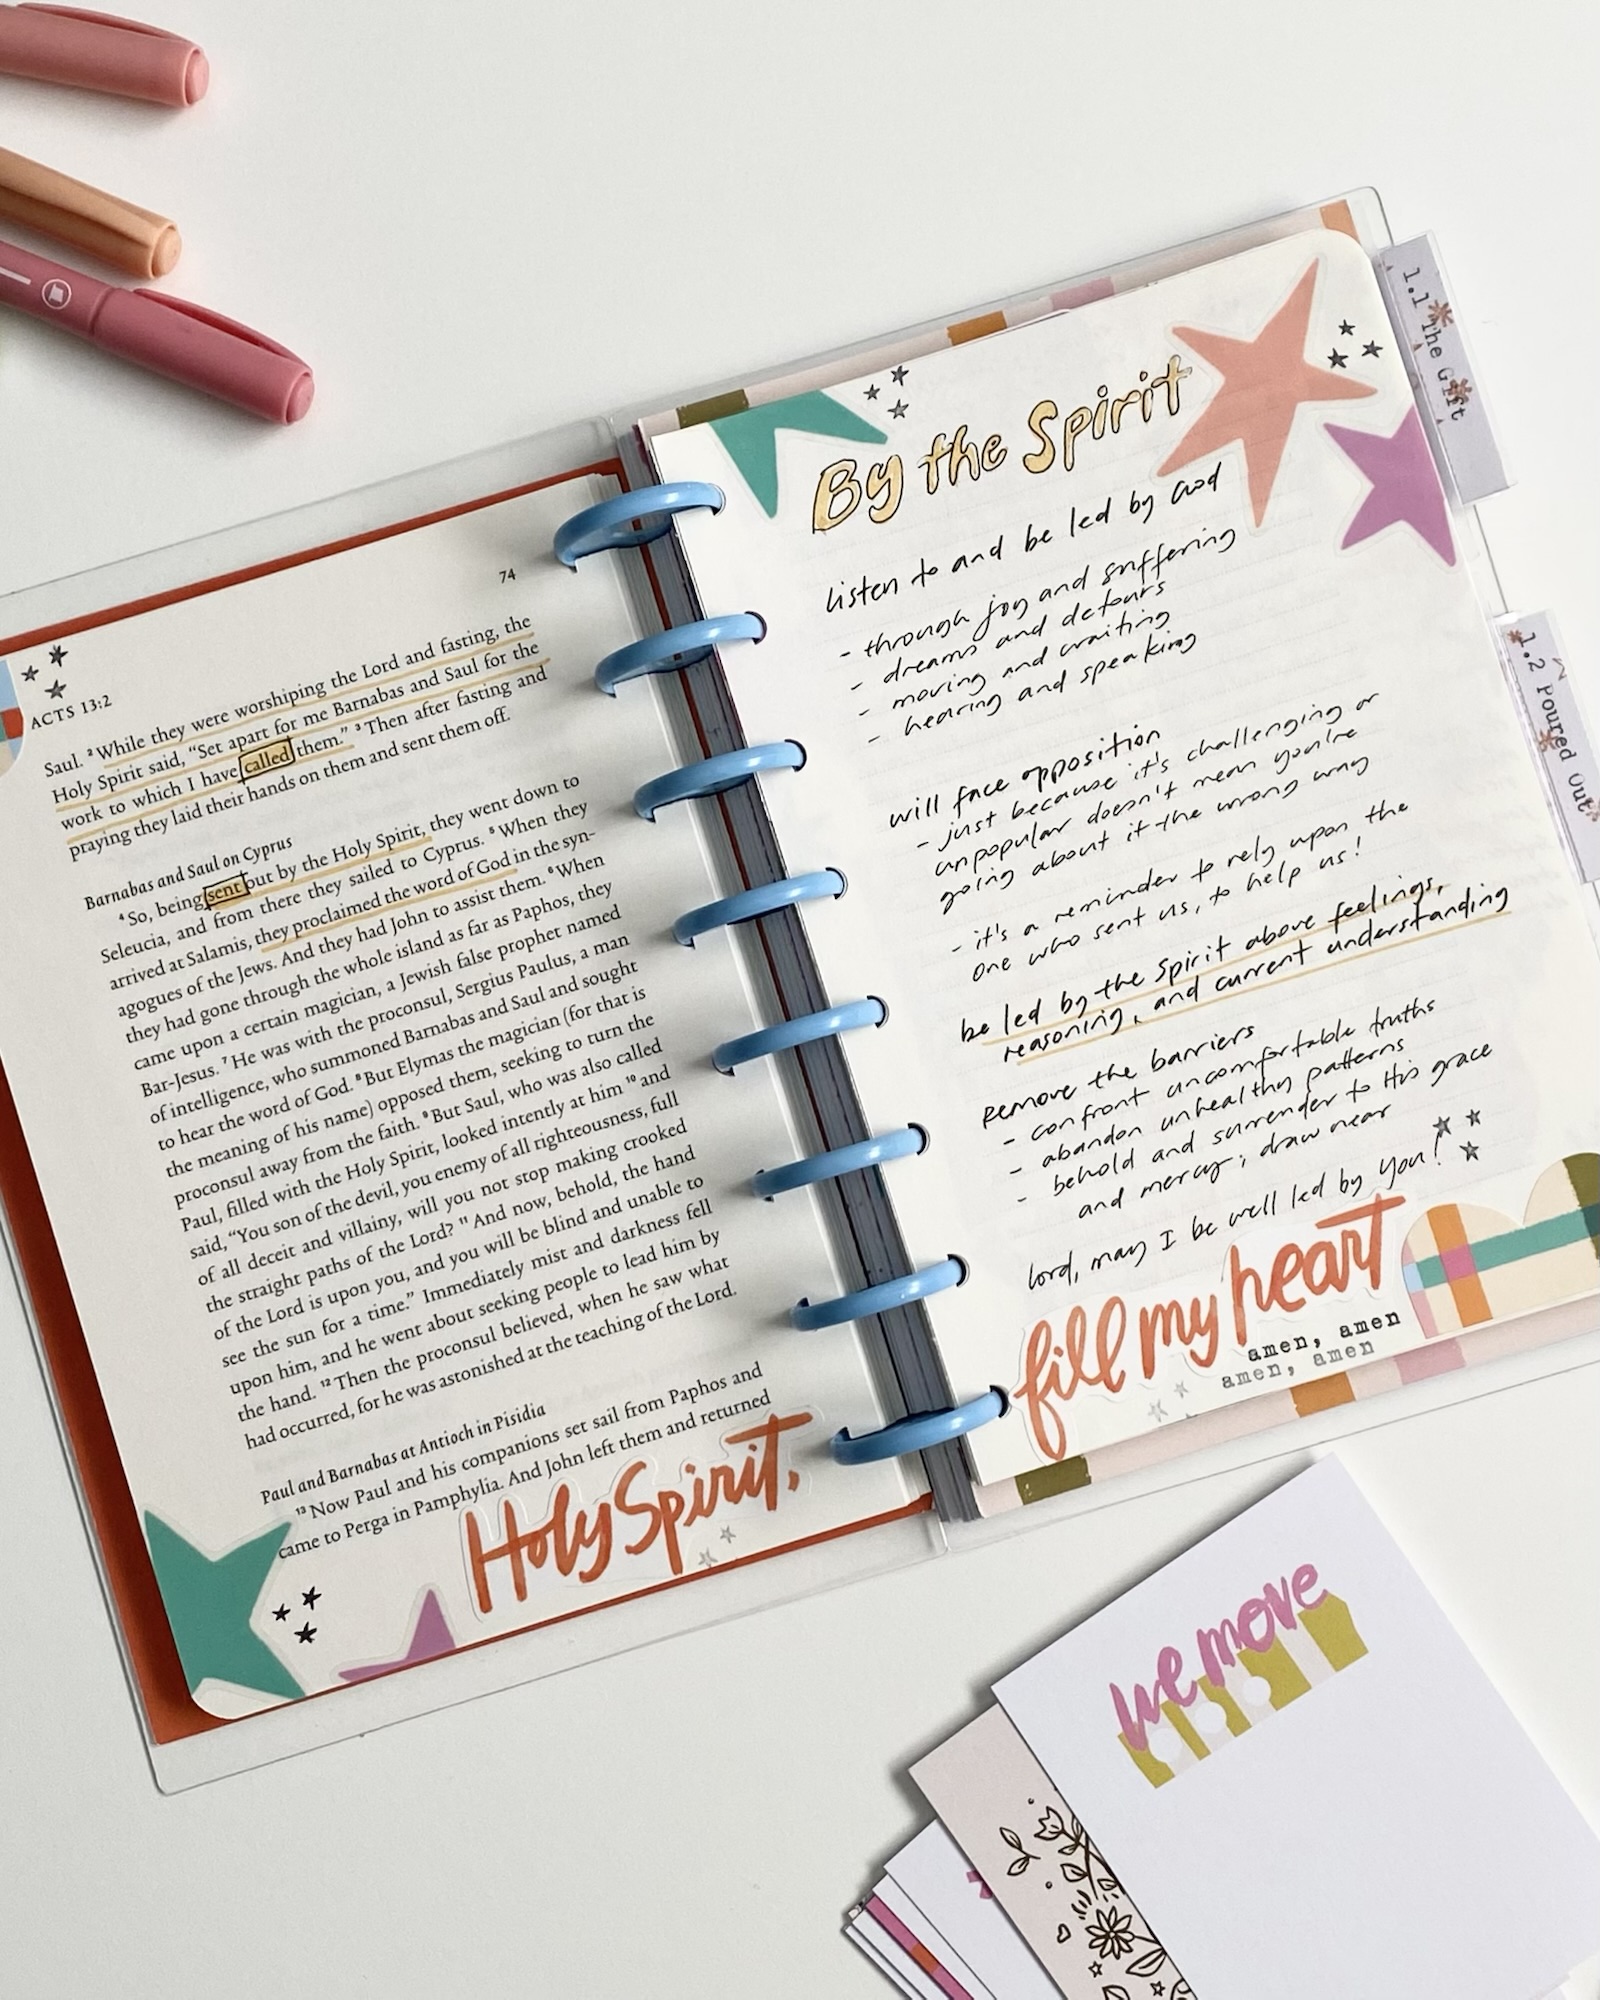 74
ACTS 13:2
Saul. ² While they were worshiping the Lord and fasting, the
Holy Spirit said, “Set apart for me Barnabas and Saul for the
work to which I have called them.” ³ Then after fasting and
praying they laid their hands on them and sent them off.
Barnabas and Saul on Cyprus
⁴ So, being sent out by the Holy Spirit, they went down to
Seleucia, and from there they sailed to Cyprus. ⁵ When they
arrived at Salamis, they proclaimed the word of God in the syn-
agogues of the Jews. And they had John to assist them. ⁶ When
they had gone through the whole island as far as Paphos, they
came upon a certain magician, a Jewish false prophet named
Bar-Jesus. ⁷ He was with the proconsul, Sergius Paulus, a man
of intelligence, who summoned Barnabas and Saul and sought
to hear the word of God. ⁸ But Elymas the magician (for that is
the meaning of his name) opposed them, seeking to turn the
proconsul away from the faith. ⁹ But Saul, who was also called
Paul, filled with the Holy Spirit, looked intently at him ¹⁰ and
said, “You son of the devil, you enemy of all righteousness, full
of all deceit and villainy, will you not stop making crooked
the straight paths of the Lord? ¹¹ And now, behold, the hand
of the Lord is upon you, and you will be blind and unable to
see the sun for a time.” Immediately mist and darkness fell
upon him, and he went about seeking people to lead him by
the hand. ¹² Then the proconsul believed, when he saw what
had occurred, for he was astonished at the teaching of the Lord.
Paul and Barnabas at Antioch in Pisidia
¹³ Now Paul and his companions set sail from Paphos and
came to Perga in Pamphylia. And John left them and returned
Holy Spirit,
By the Spirit
listen to and be led by God
- through joy and suffering
- dreams and detours
- moving and waiting
- hearing and speaking
will face opposition
- just because it's challenging or
unpopular doesn't mean you're
going about it the wrong way
- it's a reminder to rely upon the
one who sent us, to help us!
be led by the Spirit above feelings,
reasoning, and current understanding
Remove the barriers
- confront uncomfortable truths
- abandon unhealthy patterns
- behold and surrender to His grace
and mercy; draw near
lord, may I be well led by You!
fill my heart
amen, amen
amen, amen
1.1 The Gift
1.2 Poured Out
we move